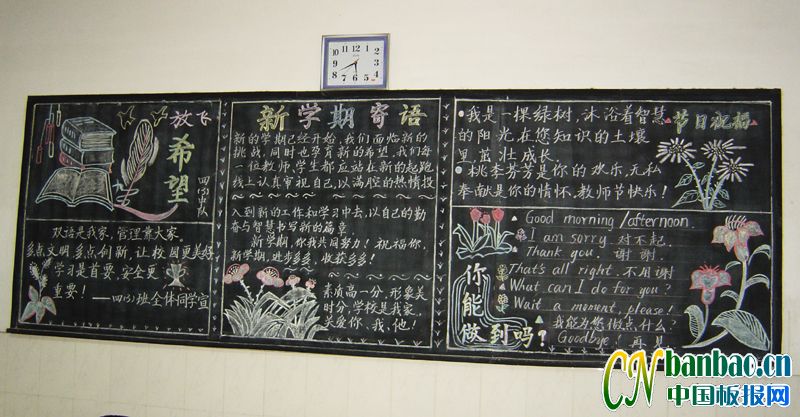 放飞
希望
四(3)中队
双语是我家,管理靠大家。
多点文明,多点创新,让校园更美好
学习是首要,安全更
重要!
——四(3)班全体同学宣
新学期寄语
新的学期已经开始,我们面临新的
挑战,同时也孕育新的希望。我们每
一位教师、学生都应站在新的起跑
线上认真审视自己,以满腔的热情投
入到新的工作和学习中去,以自己的勤
奋与智慧书写新的篇章
新学期,你我共同努力!祝福你,
新学期,进步多多,收获多多!
素质高一分,形象美
时分,学校是我家,
关爱你、我、他!
节日祝福
我是一棵绿树,沐浴着智慧
的阳光在您知识的土壤
里,茁壮成长.
桃李芬芳是你的欢乐,无私
奉献是你的情怀,教师节快乐!
你能做到吗?
Good morning/afternoon.
I am sorry. 对不起.
Thank you. 谢谢.
That's all right. 不用谢
What can I do for you?
Wait a moment, please!
我能为您做点什么?
Goodbye! 再见
CN banbao.cn
中国板报网